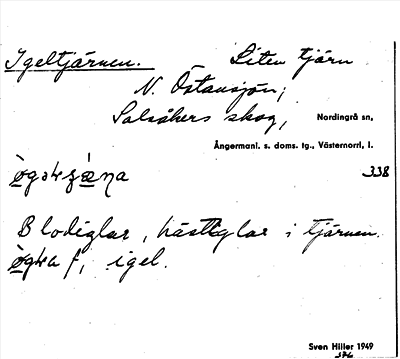 Igeltjärnen. Liten tjärn
N. Östansjön,
Salsåkers skog, Nordingrå sn,
Ångermanl. s. doms. tg., Västernorrl. l.
338
Blodiglar, hästiglar i tjärnen.
f, igel.
Sven Hiller 1949